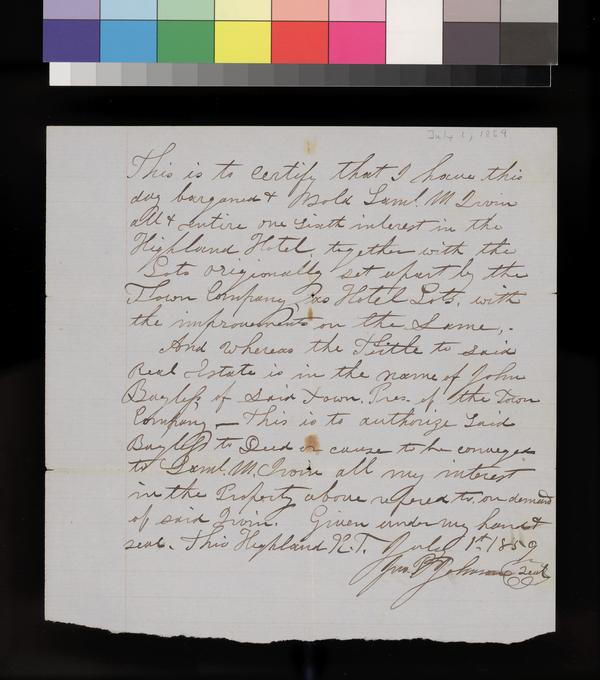 July 1, 1859
This is to certify that I have this
day barganed & sold Saml. M Irvin
all & entire one sixth interest in the
Highland Hotel, together with the
Lots origionally set apart by the
Town Company, as Hotel Lots, with
the improvements on the Same,.
And Whereas the Tittle to said
Real Estate is in the name of John
Bayless of Said Town. Pres. of the Town
Company — This is to authorize Said
Bayless to Deed or cause to be conveyed
to Saml. M. Irvin all my interest
in the Property above refered to, on demand
of said Irvin. Given under my hand &
seal. This Highland K.T. July 1st. 1859
Jno. P Johnson Seal